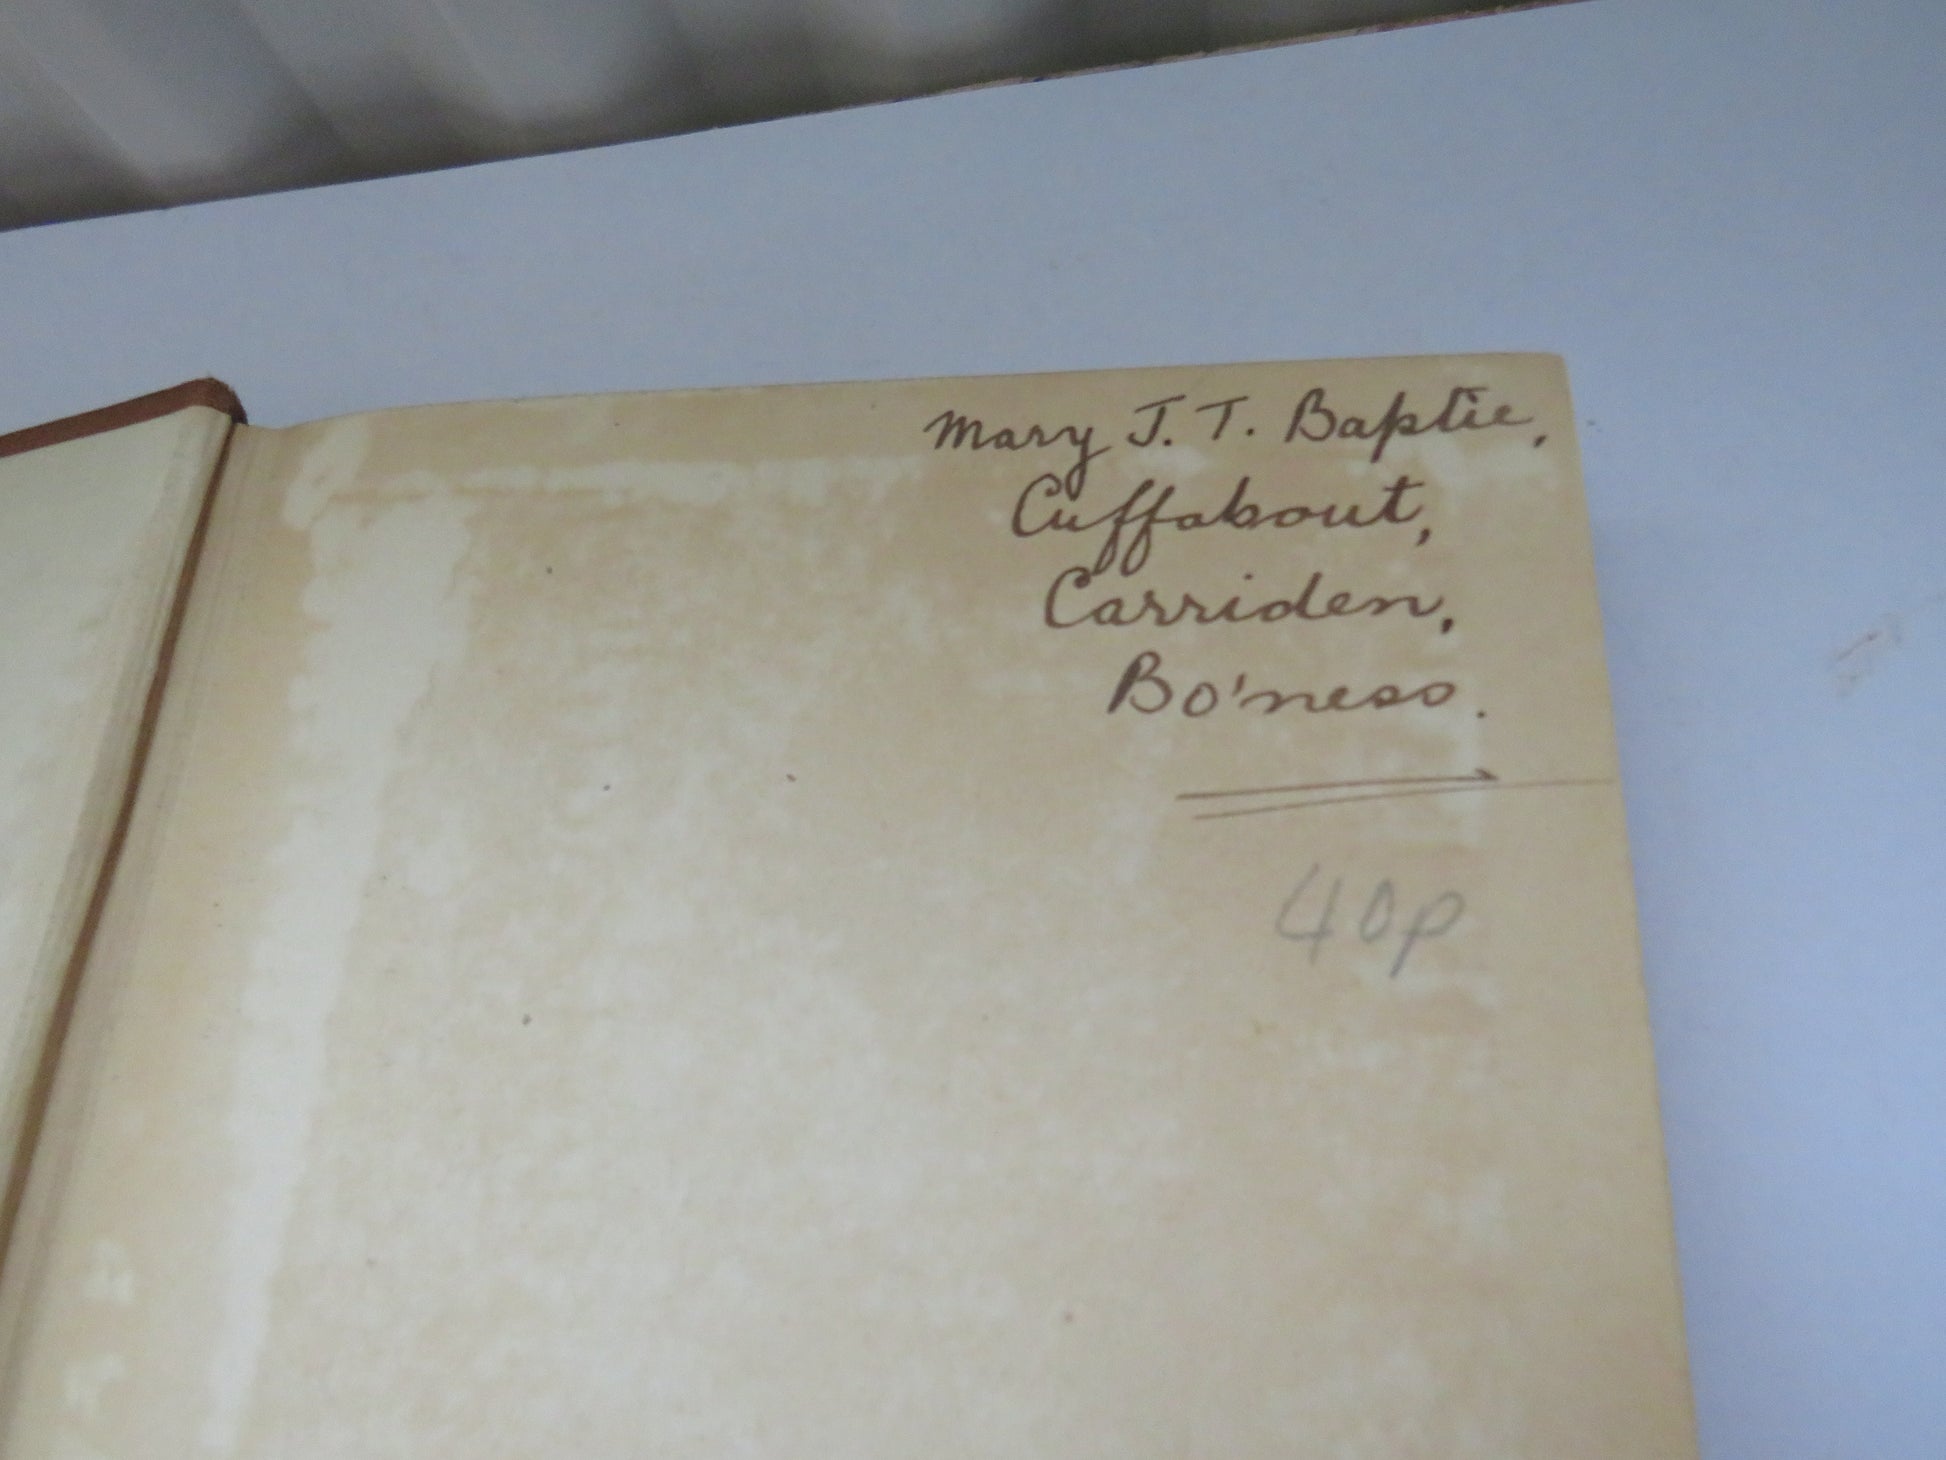 Mary J. T. Baptie,
Cuffabout,
Carriden,
Bo'ness.
40p